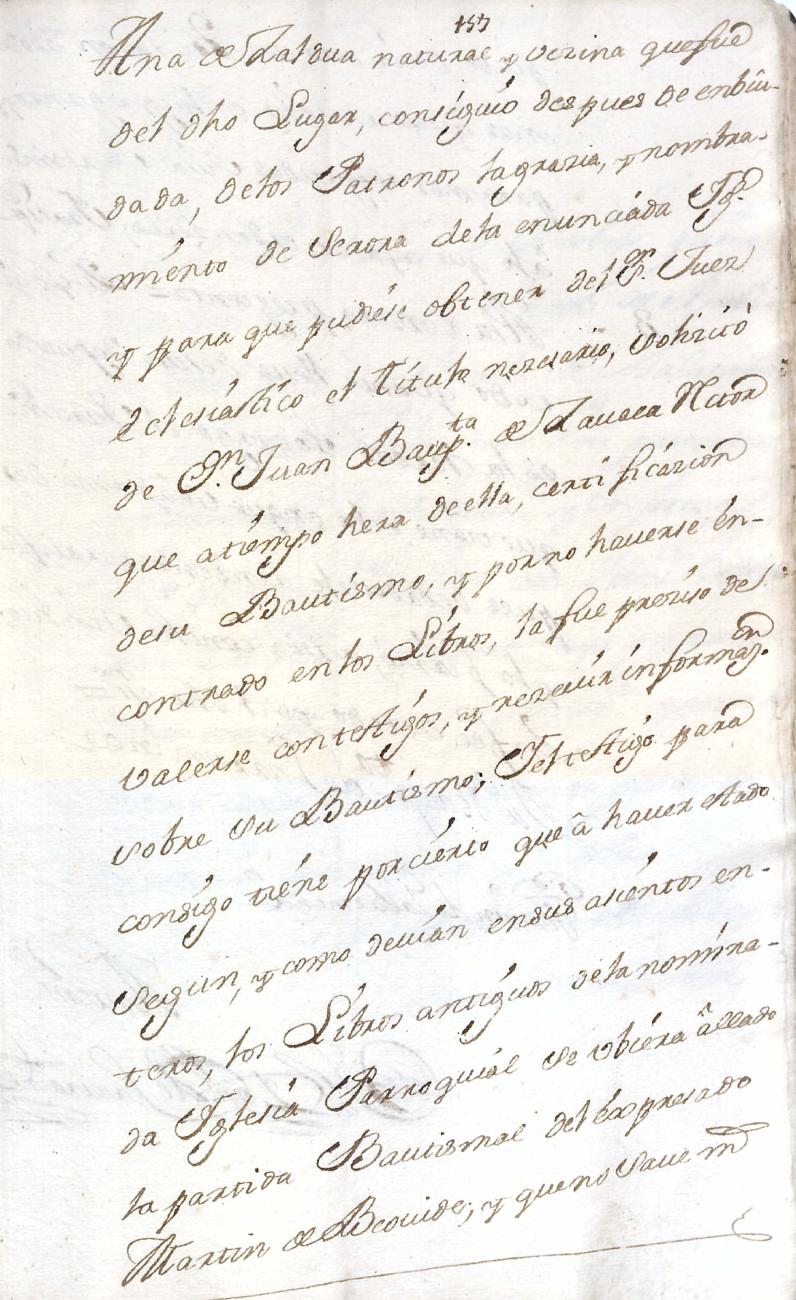 157
Ana de Zaldua natural y vezina que fue
del dho Lugar, consiguió despues de enbiu-
dada, delos Patronos la grazia, y nombra-
miento de Serora dela enunciada Ygª.
y para que pudiese obtener del Sr. Juez
Eclesiástico el título nezesario, solizitó
de Dn. Juan Baupta. de Zavala Retor
que atiempo hera de ella, certificazion
desu Bautismo, y por no haverse én-
contrado en los Libros, la fue preziso de
valerse con testigos, y rezeuir informazon.
sobre su Bautismo; Y el testigo para
consigo tiéne por cierto que â haver estado
Segun, y como deuían ensus asiéntos en-
teros, los Libros antiguos dela nomína-
da Yglesia Parroquiál se vbiéra âllado
la partida Bautismal del éxpresado
Martin de Beouide; y que no saue mas